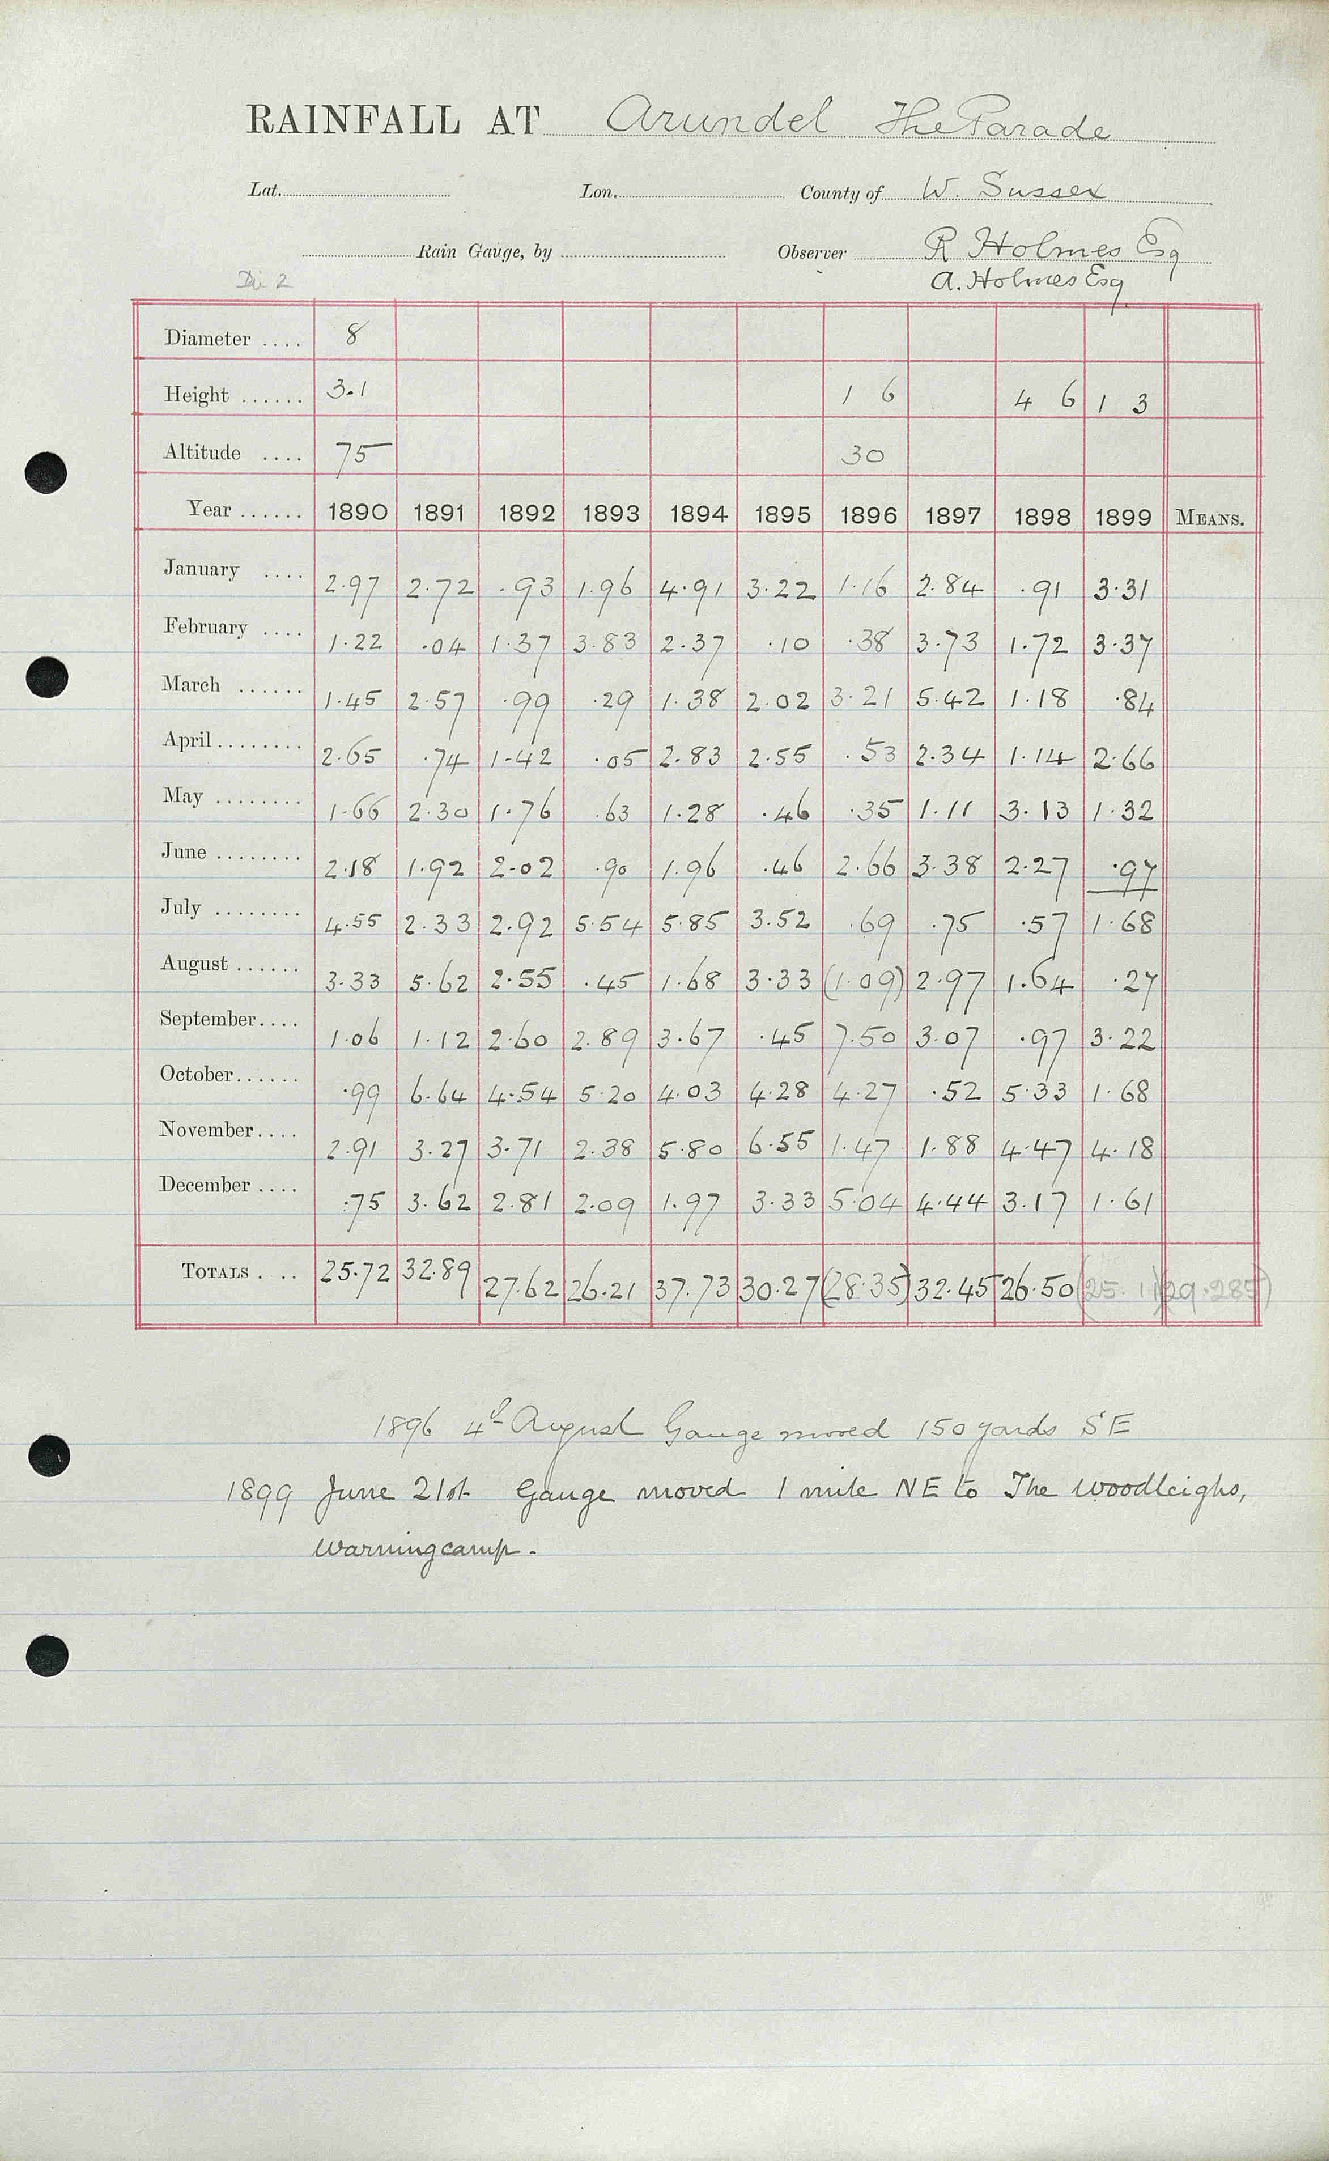 RAINFALL AT Arundel The Parade
Lat. Lon. County of W. Sussex
Rain Gauge, by Observer R Holmes Esq
A. Holmes Esq
Diameter .... 8
Height ...... 3.1 1 6 4 6 1 3
Altitude .... 75 30
Year ...... 1890 1891 1892 1893 1894 1895 1896 1897 1898 1899 MEANS.
January .... 2.97 2.72 .93 1.96 4.91 3.22 1.16 2.84 .91 3.31
February .... 1.22 .04 1.37 3.83 2.37 .10 .38 3.73 1.72 3.37
March ...... 1.45 2.57 .99 .29 1.38 2.02 3.21 5.42 1.18 .84
April ........ 2.65 .74 1.42 .05 2.83 2.55 .53 2.34 1.14 2.66
May ........ 1.66 2.30 1.76 .63 1.28 .46 .35 1.11 3.13 1.32
June ........ 2.18 1.92 2.02 .90 1.96 .46 2.66 3.38 2.27 .97
July ........ 4.55 2.33 2.92 5.54 5.85 3.52 .69 .75 .57 1.68
August ...... 3.33 5.62 2.55 .45 1.68 3.33 (1.09) 2.97 1.64 .27
September .... 1.06 1.12 2.60 2.89 3.67 .45 7.50 3.07 .97 3.22
October ...... .99 6.64 4.54 5.20 4.03 4.28 4.27 .52 5.33 1.68
November .... 2.91 3.27 3.71 2.38 5.80 6.55 1.47 1.88 4.47 4.18
December .... .75 3.62 2.81 2.09 1.97 3.33 5.04 4.44 3.17 1.61
TOTALS . .. 25.72 32.89 27.62 26.21 37.73 30.27 (28.35) 32.45 26.50 (25.11) 29.285)
1896 4th August Gauge moved 150 yards SE
1899 June 21st. Gauge moved 1 mile NE to The Woodleighs,
Warningcamp.